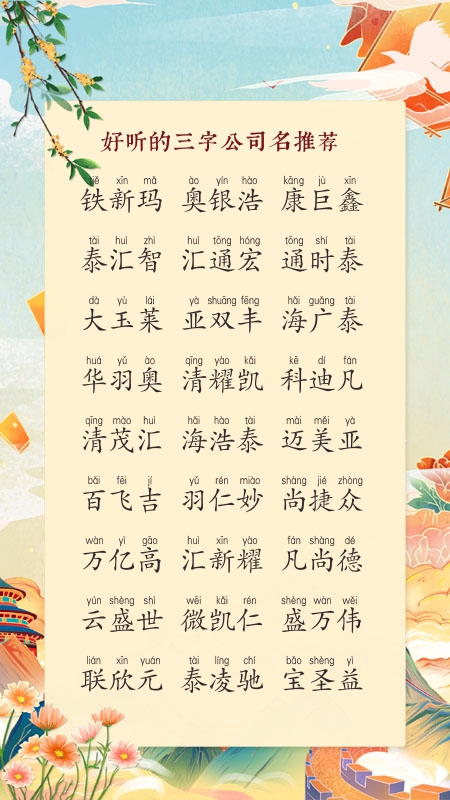 好听的三字公司名推荐
tiě xīn mǎ ào yín hào kāng jù xīn
铁新玛 奥银浩 康巨鑫
tài huì zhì huì tōng hóng tōng shí tài
泰汇智 汇通宏 通时泰
dà yù lái yà shuāng fēng hǎi guǎng tài
大玉莱 亚双丰 海广泰
huá yǔ ào qīng yào kǎi kē dí fán
华羽奥 清耀凯 科迪凡
qīng mào huì hǎi hào tài mài měi yà
清茂汇 海浩泰 迈美亚
bǎi fēi jí yǔ rén miào shàng jié zhòng
百飞吉 羽仁妙 尚捷众
wàn yì gāo huì xīn yào fán shàng dé
万亿高 汇新耀 凡尚德
yún shèng shì wēi kǎi rén shèng wàn wěi
云盛世 微凯仁 盛万伟
lián xīn yuán tài líng chí bǎo shèng yì
联欣元 泰凌驰 宝圣益